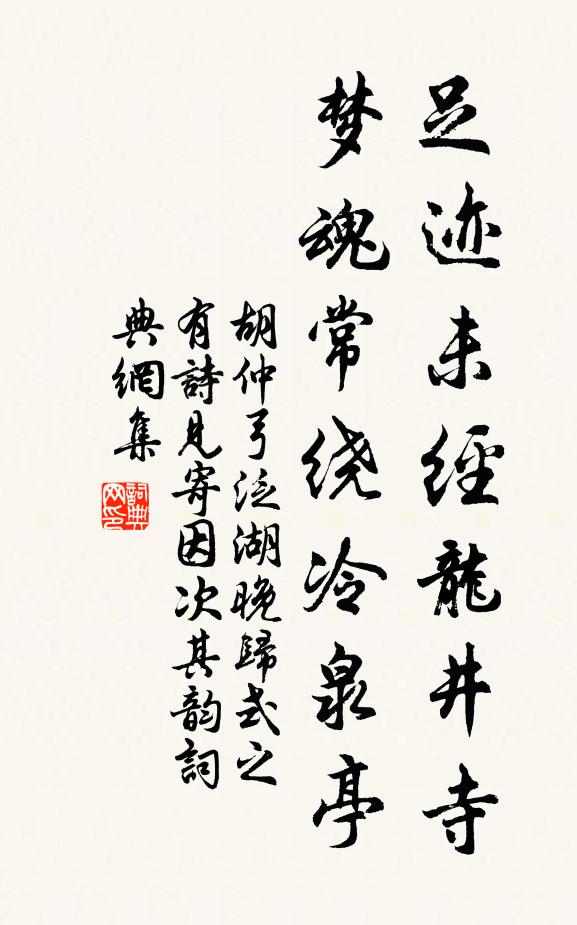 足迹未經龍井寺
梦魂常绕冷泉亭
胡仲弓泛湖晚歸式之
有詩見寄因次其韵詞
典網集
詞典
网印